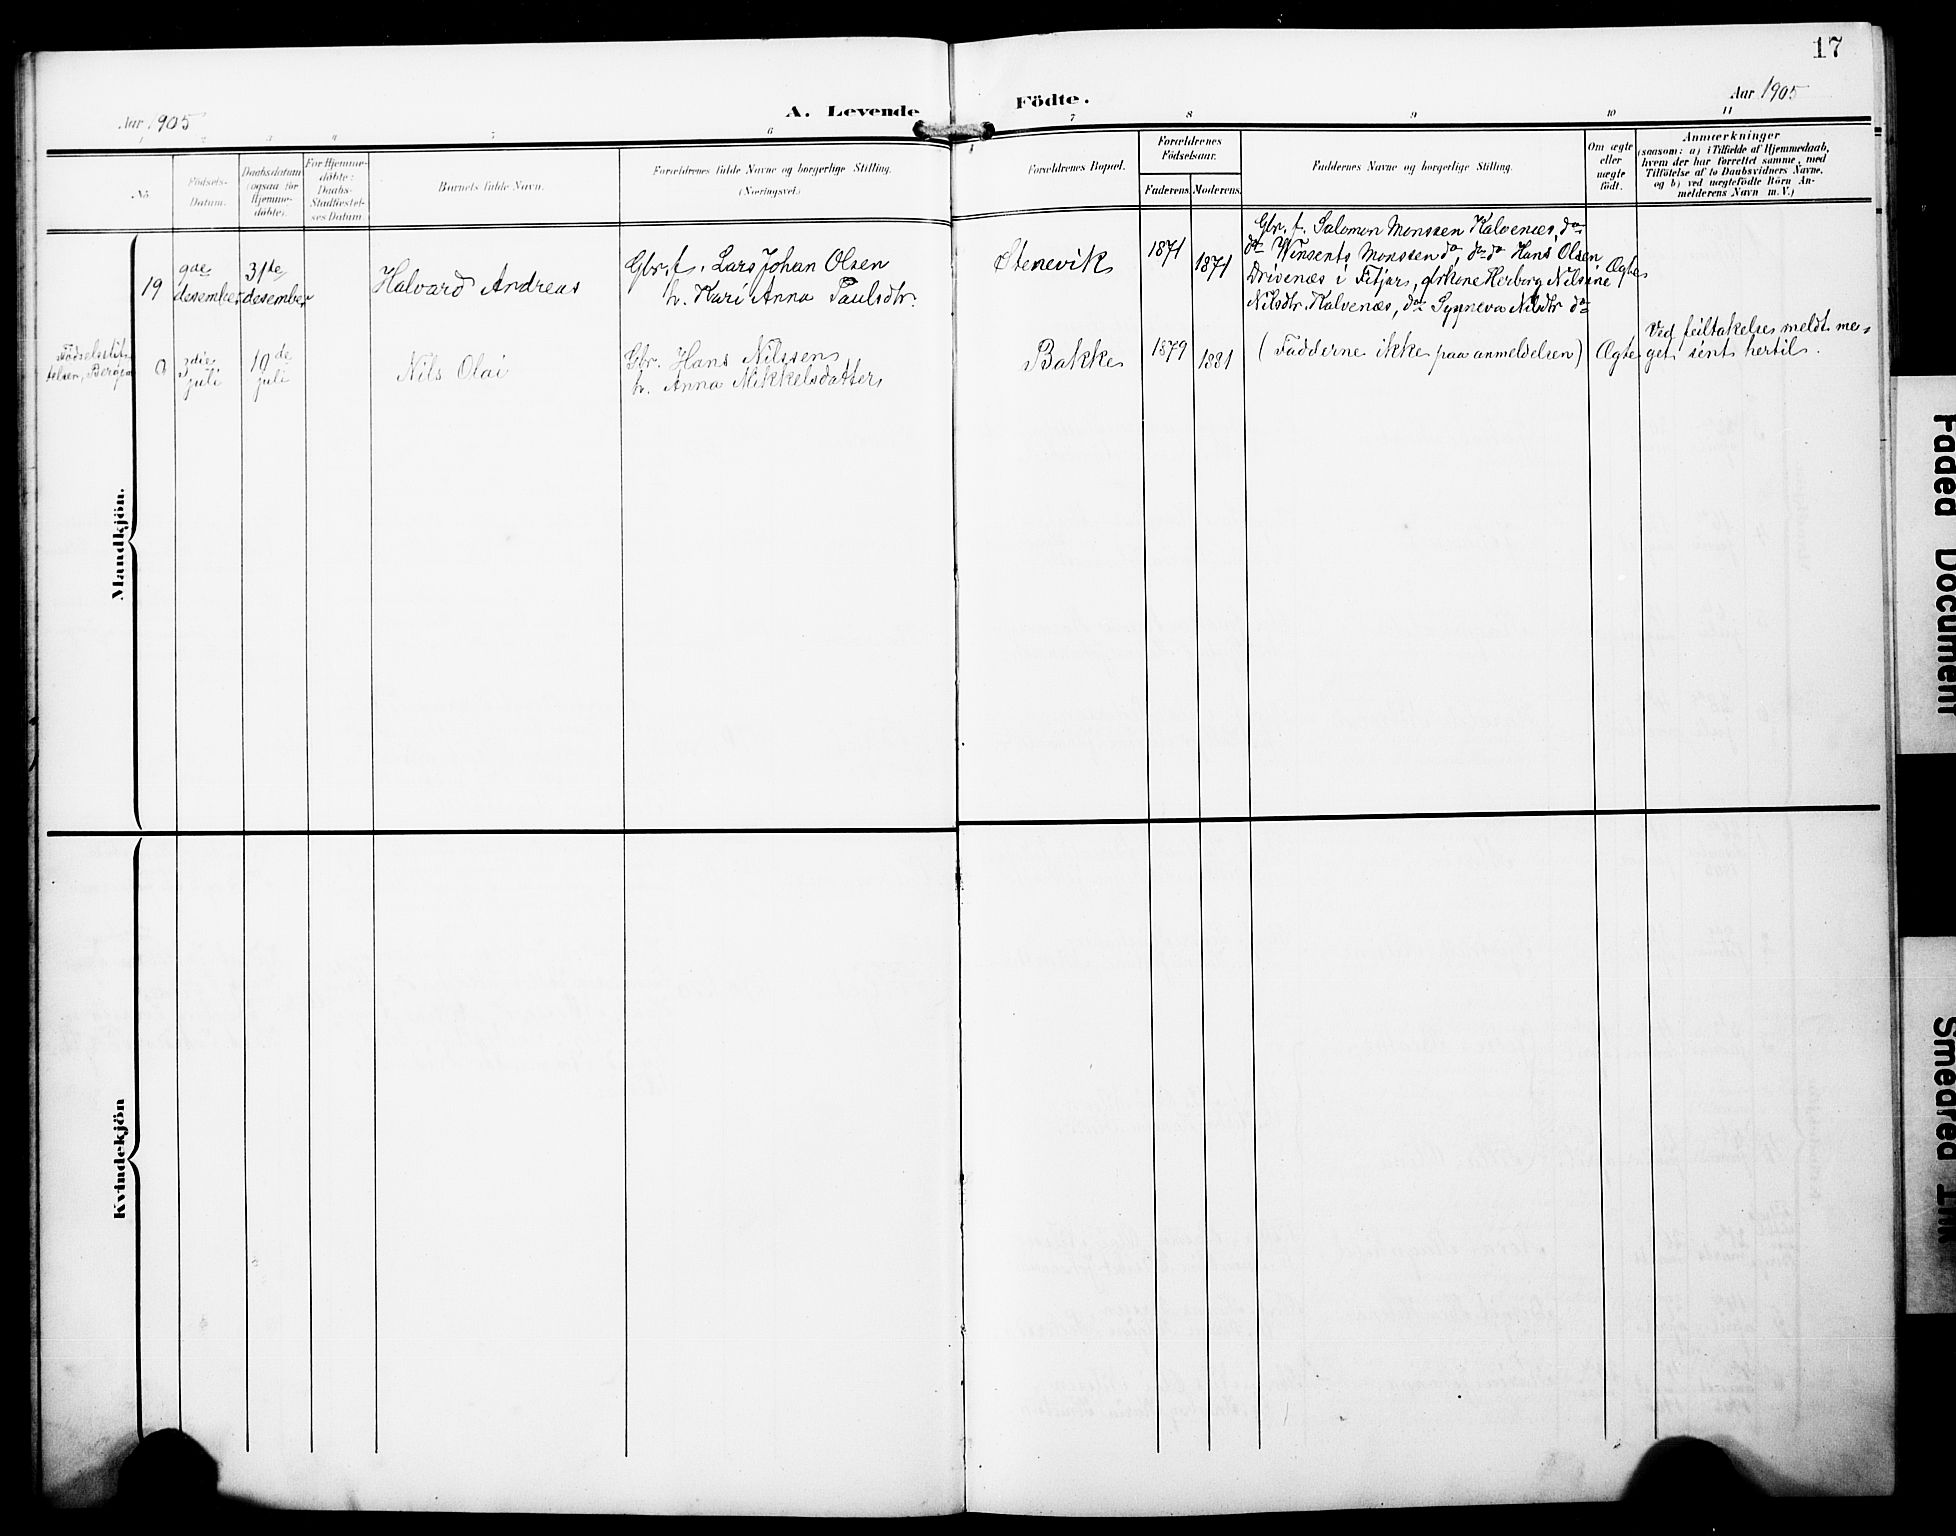 17
Aar 1905
A. Levende Födte.
Aar 1905
1 2 3 4 5 6 7 8 9 10 11
No.
Födsels-
Datum.
Daabsdatum
(ogsaa for
Hjemme-
döbte).
For Hjemme-
döbte:
Daabs-
Stadfæstel-
ses Datum
Barnets fulde Navn.
Forældrenes fulde Navne og borgerlige Stilling.
(Næringsvei.)
Forældrenes Bopæl.
Forældrenes
Födselsaar.
Faderens.
Moderens.
Faddernes Navne og borgerlige Stilling.
Om ægte
eller
uægte
født.
Anmærkninger
(saasom: a) i Tilfælde af Hjemmedaab,
hvem der har forrettet samme, med
Tilföielse af to Daabsvidners Navne,
og b) ved uægtefödte Börn An-
melderens Navn m. V.)
Mandkjön.
19
9de
desember
31te
desember
Halvard Andreas
Gbr. f. Lars Johan Olsen
h. Kari Anna Paulsdtr.
Stenevik
1871
1871
Gbr. f. Salomon Monssen Kalvenæs, do
do Winsents Monssen do, do do Hans Olsen
Drivenæs i Fitjar, Herborg Nilsine
Nilsdtr. Kalvenæs, do Synneva Nilsdtr do
Ægte
Födselsstif-
telsen, Bergen
0
3die
juli
10de
juli
Nils Olai
Gbr. Hans Nilssen
h. Anna Mikkelsdatter
Bakke
1879
1881
(Fadderne ikke paa anmeldelsen)
Ægte
Ved feiltakelse meldt me-
get sent hertil.
Kvindekjön
Faded Document
Smeared Ink